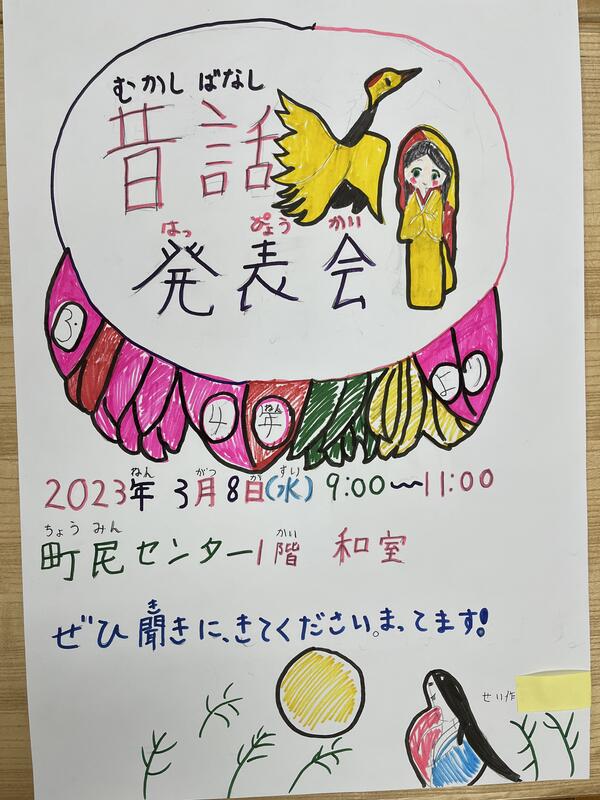 むかし ばなし
昔話
はっ ぴょう かい
発表会
3・4年より
ねん
ねん がつ か すい
2023年 3月8日(水) 9:00〜11:00
ちょう みん かい
町民センター1階 和室
き
ぜひ聞きに、きてください。まってます!
せい作